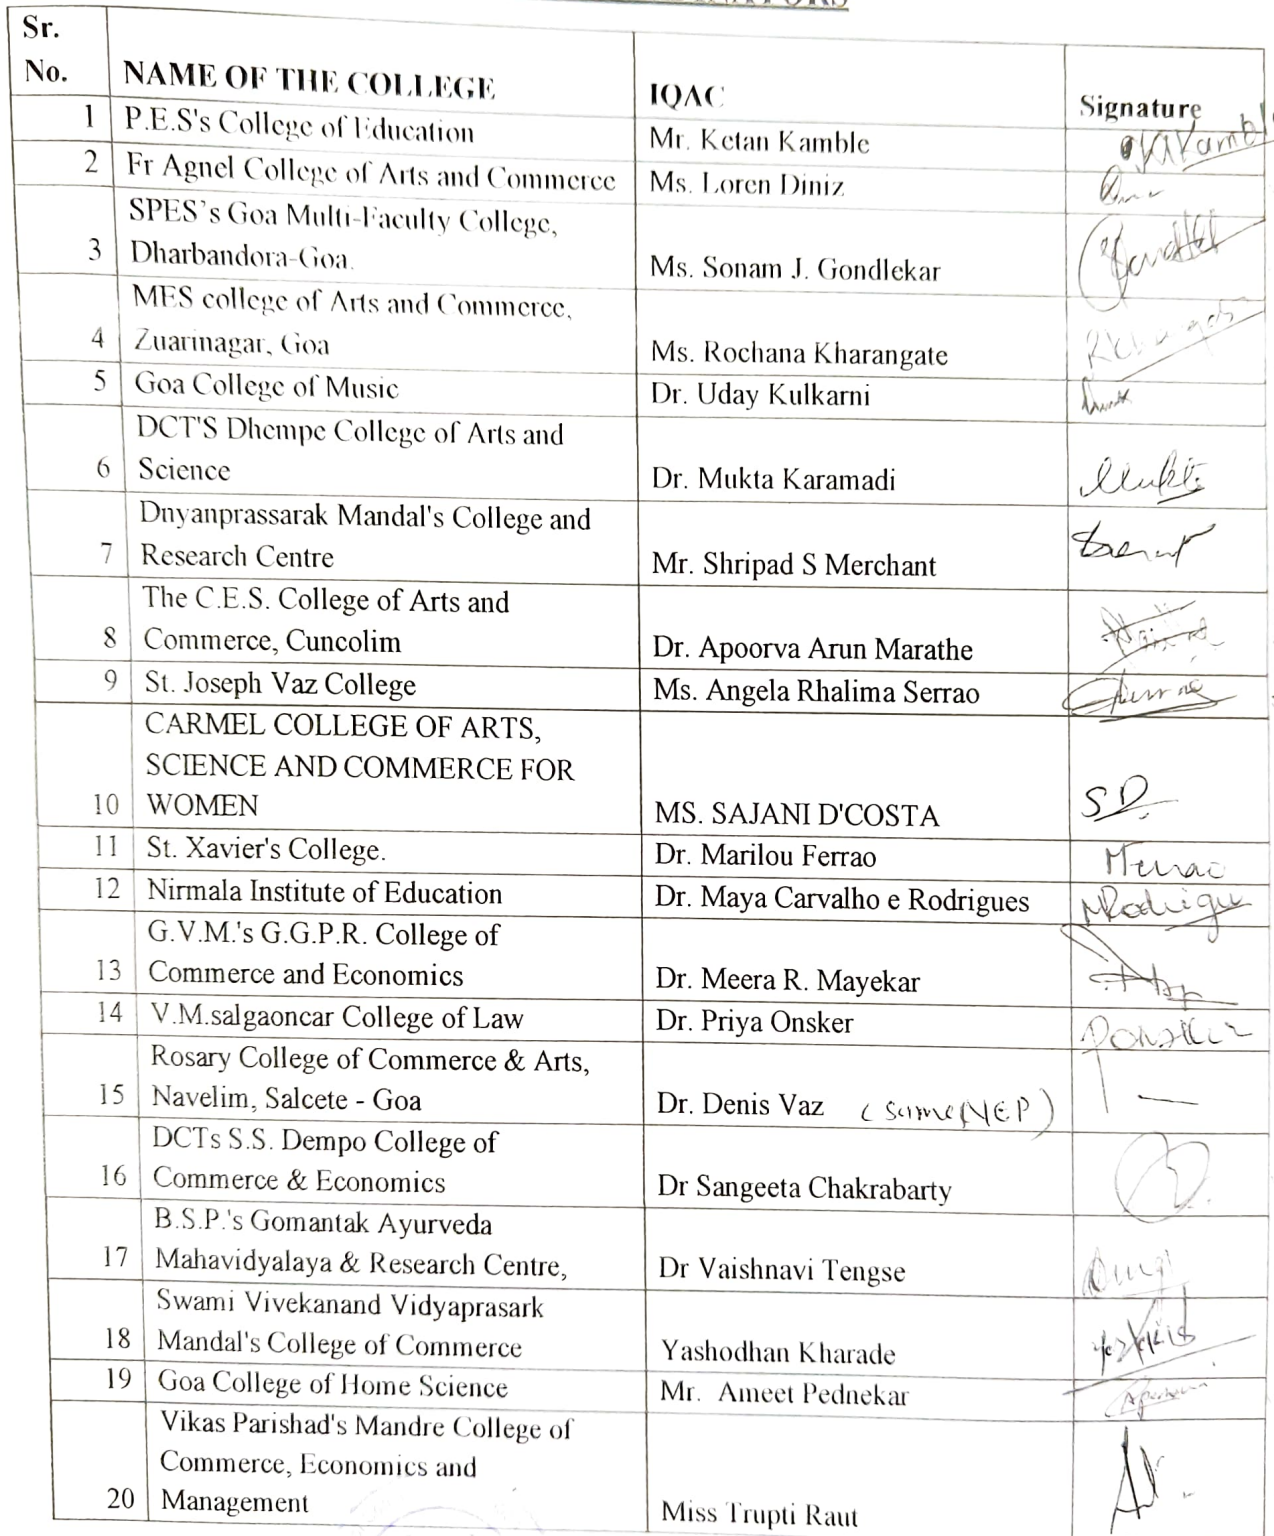 Sr.
No. NAME OF THE COLLEGE IQAC Signature
1 P.E.S's College of Education Mr. Ketan Kamble KKambl
2 Fr Agnel College of Arts and Commerce Ms. Loren Diniz
SPES's Goa Multi-Faculty College,
3 Dharbandora-Goa. Ms. Sonam J. Gondlekar
MES college of Arts and Commerce,
4 Zuarinagar, Goa Ms. Rochana Kharangate
5 Goa College of Music Dr. Uday Kulkarni
DCT'S Dhempe College of Arts and
6 Science Dr. Mukta Karamadi Mukta
Dnyanprassarak Mandal's College and
7 Research Centre Mr. Shripad S Merchant
The C.E.S. College of Arts and
8 Commerce, Cuncolim Dr. Apoorva Arun Marathe
9 St. Joseph Vaz College Ms. Angela Rhalima Serrao
CARMEL COLLEGE OF ARTS,
SCIENCE AND COMMERCE FOR
10 WOMEN MS. SAJANI D'COSTA SD
11 St. Xavier's College. Dr. Marilou Ferrao
12 Nirmala Institute of Education Dr. Maya Carvalho e Rodrigues
G.V.M.'s G.G.P.R. College of
13 Commerce and Economics Dr. Meera R. Mayekar
14 V.M.salgaoncar College of Law Dr. Priya Onsker
Rosary College of Commerce & Arts,
15 Navelim, Salcete - Goa Dr. Denis Vaz (same NEP) —
DCTs S.S. Dempo College of
16 Commerce & Economics Dr Sangeeta Chakrabarty
B.S.P.'s Gomantak Ayurveda
17 Mahavidyalaya & Research Centre, Dr Vaishnavi Tengse
Swami Vivekanand Vidyaprasark
18 Mandal's College of Commerce Yashodhan Kharade
19 Goa College of Home Science Mr. Ameet Pednekar
Vikas Parishad's Mandre College of
Commerce, Economics and
20 Management Miss Trupti Raut